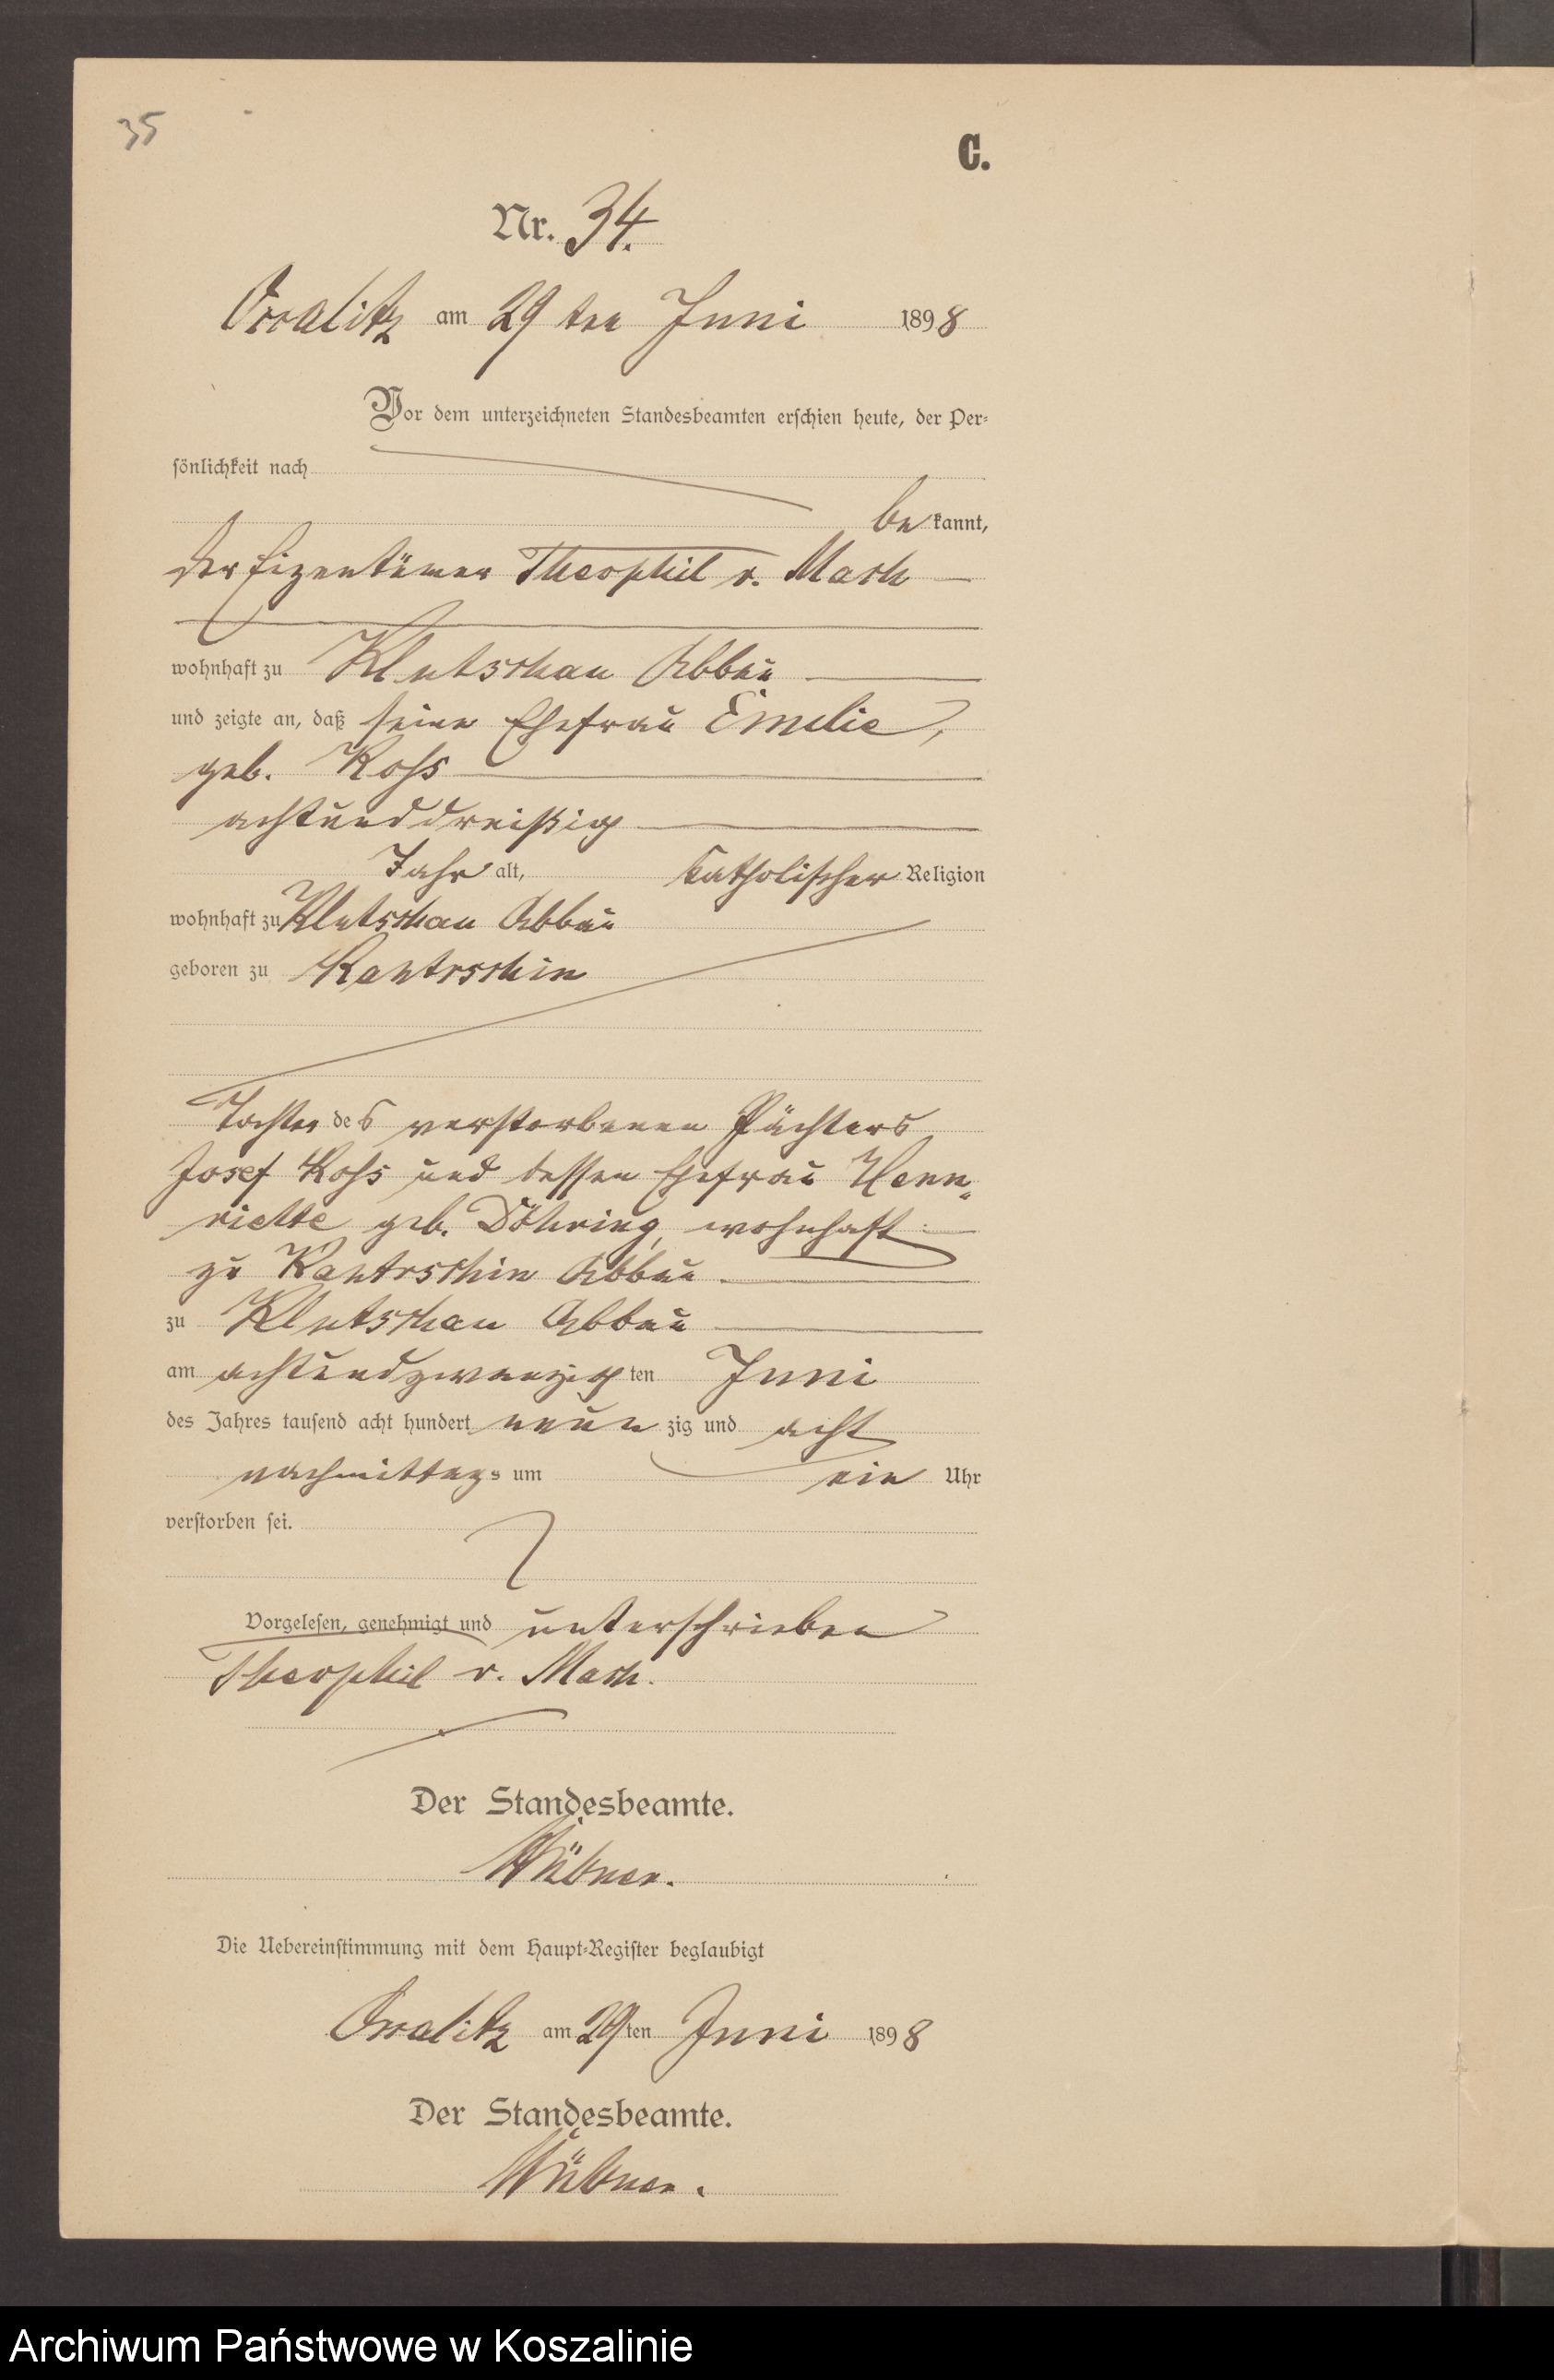 35
C.
Nr. 34.
am 29 ten Juni 1898
Vor dem unterzeichneten Standesbeamten erschien heute, der Per-
sönlichkeit nach
be kannt,
der Eigentümer Theophil v. Mach
wohnhaft zu Klutschau Abbau
und zeigte an, daß seine Ehefrau Emilie,
geb. Koss
achtunddreißig
Jahr alt, katholischer Religion
wohnhaft zu Klutschau Abbau
geboren zu
Tochter des verstorbenen Pächters
Josef Koss und dessen Ehefrau Henn-
riette geb. Döhring, wohnhaft
zu Abbau
zu Klutschau Abbau
am achtundzwanzig ten Juni
des Jahres tausend acht hundert neun zig und acht
nachmittags um ein Uhr
verstorben sei.
Vorgelesen, genehmigt und unterschrieben
Theophil v. Mach.
Der Standesbeamte.
Die Uebereinstimmung mit dem Haupt-Register beglaubigt
am 29ten Juni 1898
Der Standesbeamte.
Archiwum Państwowe w Koszalinie